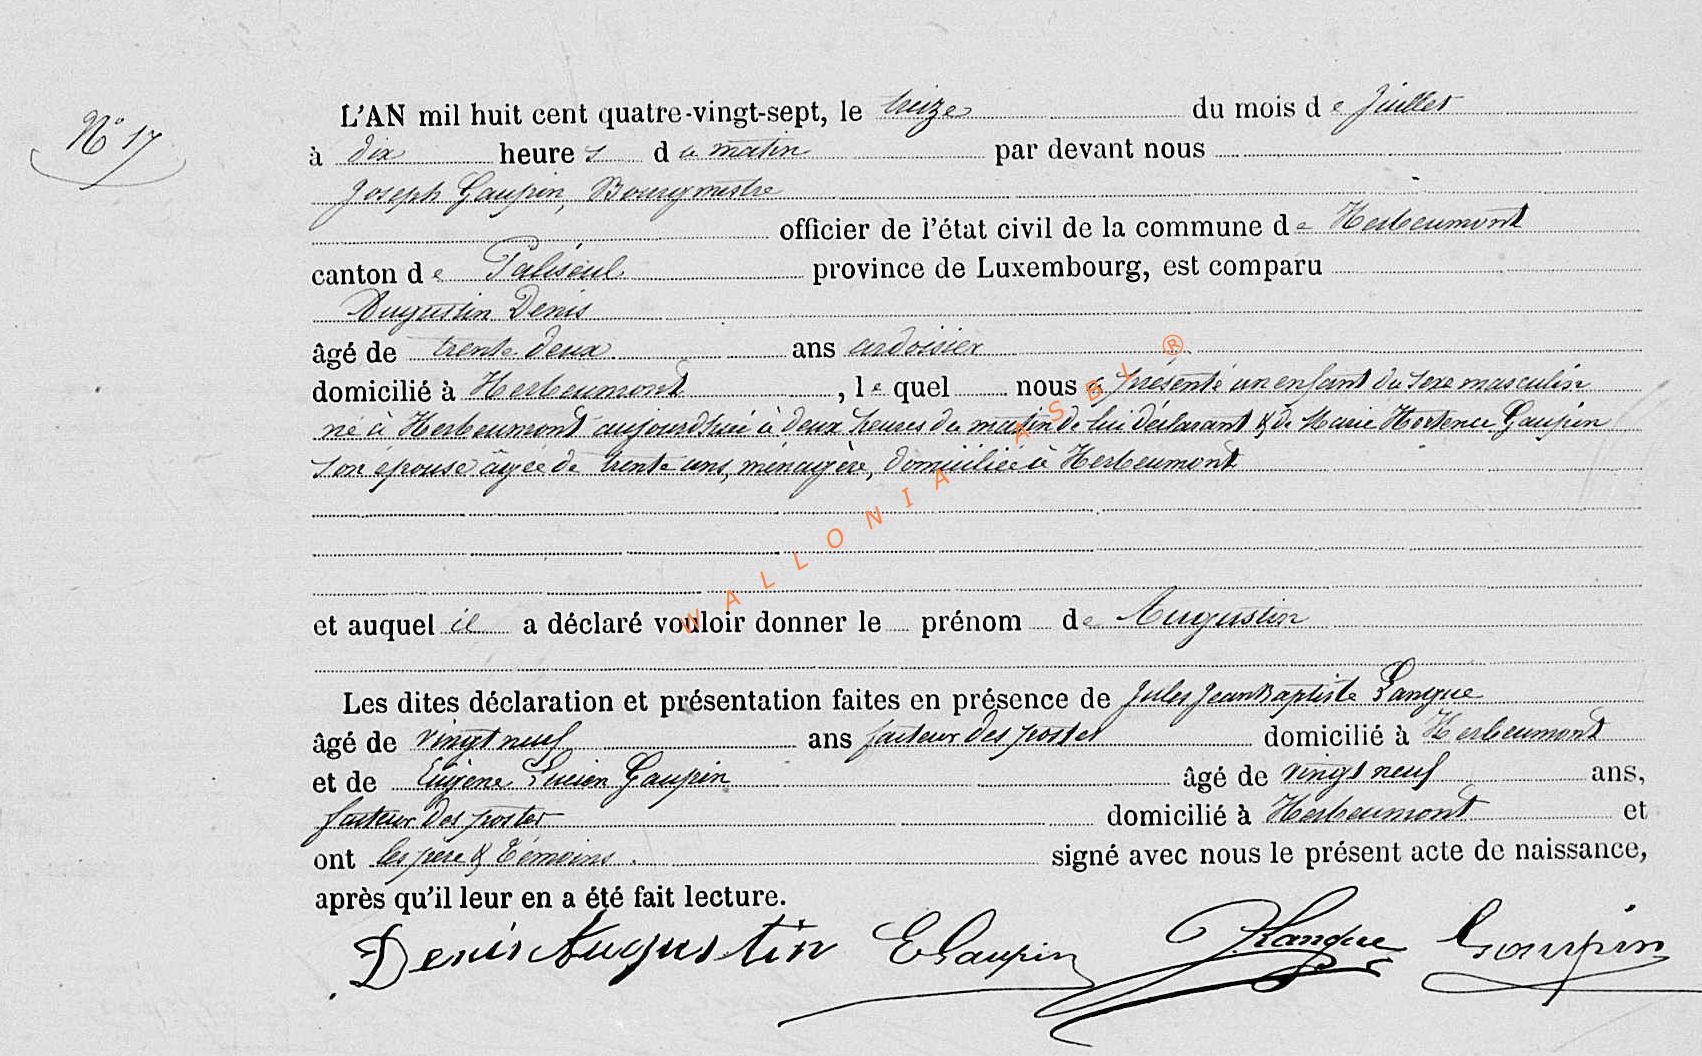 N° 17
L'AN mil huit cent quatre-vingt-sept, le treize du mois de Juillet
à dix heures du matin par devant nous
Joseph Gaupin, Bourgmestre
officier de l'état civil de la commune de Herbeumont
canton de Paliseul province de Luxembourg, est comparu
Augustin Denis
âgé de trente deux ans ardoisier
domicilié à Herbeumont, lequel nous a présenté un enfant du sexe masculin
né à Herbeumont aujourd'hui à deux heures du matin de lui déclarant & de Marie Hortence Gaupin
son épouse âgée de trente ans, ménagère, domiciliée à Herbeumont
et auquel il a déclaré vouloir donner le prénom de Augustin
Les dites déclaration et présentation faites en présence de Jules Jean Baptiste Langue
âgé de vingt neuf ans facteur des postes domicilié à Herbeumont
et de Eugène Lucien Gaupin âgé de vingt neuf ans,
facteur des postes domicilié à Herbeumont et
ont les père & témoins. signé avec nous le présent acte de naissance,
après qu'il leur en a été fait lecture.
Denis Augustin E Gaupin J. Langue Gaupin
WALLONIA ASBL ®